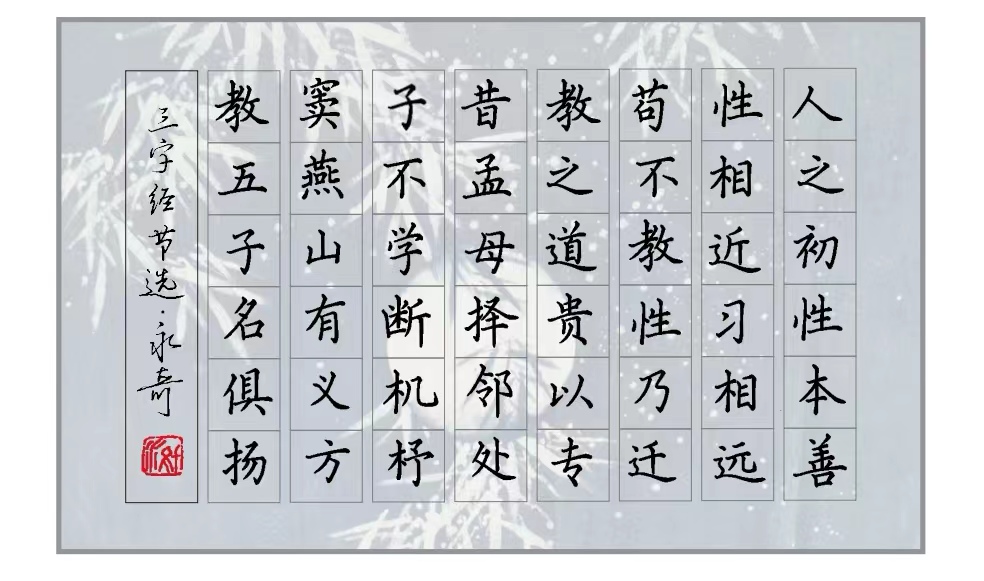 人之初性本善
性相近习相远
苟不教性乃迁
教之道贵以专
昔孟母择邻处
子不学断机杼
窦燕山有义方
教五子名俱扬
三字经节选·永奇